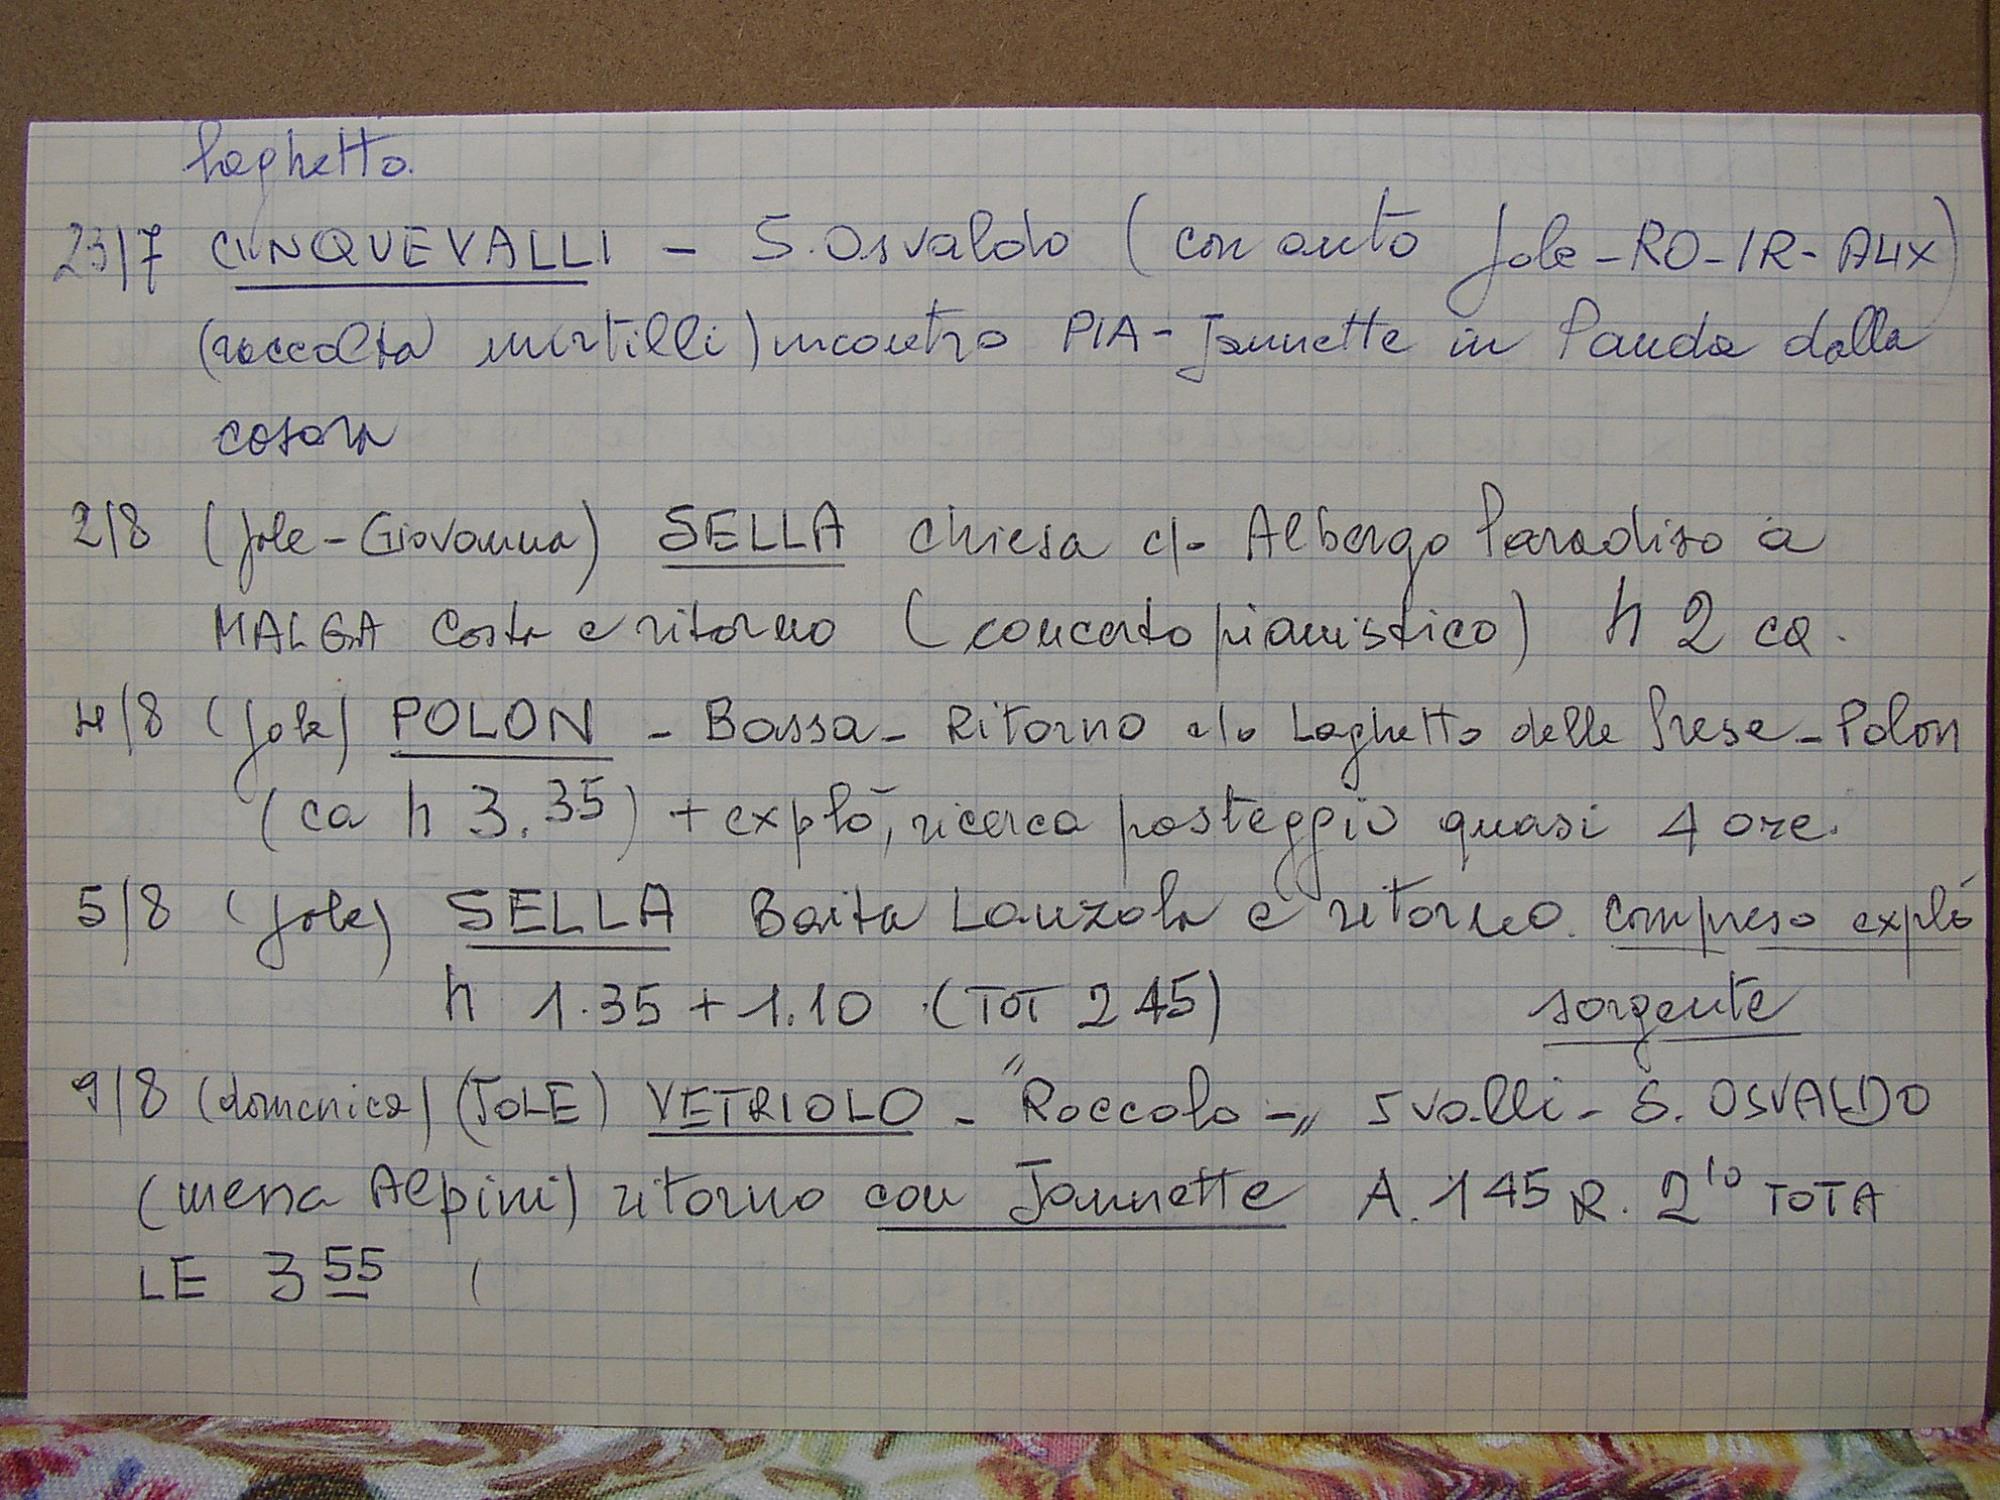 laghetto.
23/7 CINQUEVALLI - S. Osvaldo (con auto Jole-RO-IR-ALIX)
(raccolta mirtilli) incontro PIA-Jannette in Panda dalla
casara
2/8 (Jole-Giovanna) SELLA chiesa c/o Albergo Paradiso a
MALGA Costa e ritorno (concerto pianistico) h 2 ca.
4/8 (Jole) POLON - Bassa - Ritorno c/o Laghetto delle Prese - Polon
(ca h 3.35) + explò, ricerca posteggio quasi 4 ore.
5/8 (Jole) SELLA Baita Lanzola e ritorno. compreso explò
h 1.35 + 1.10 (TOT 2 45) sorgente
9/8 (domenica) (JOLE) VETRIOLO - "Roccolo -" 5 valli - S. OSVALDO
(messa Alpini) ritorno con Jannette A. 145 R. 2 10 TOTA
LE 3 55 (